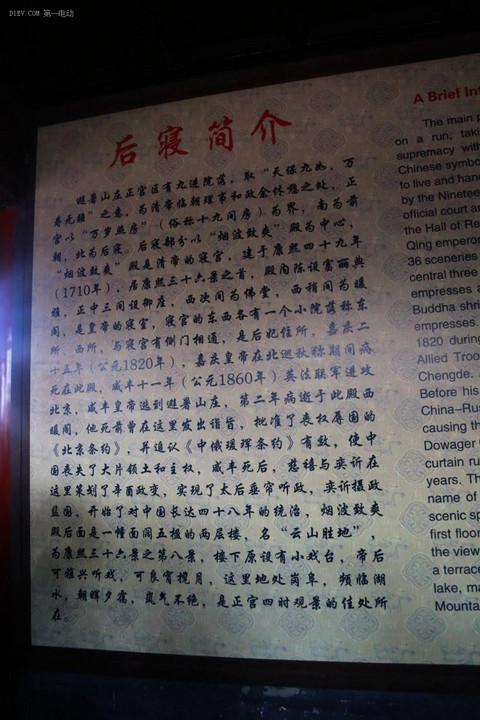 D1EV.COM 第一电动
后寝简介
避暑山庄正宫区有九进院落，取“天保九如，万
寿无疆”之意，为清帝临朝理事和政余休憩之处，正
宫以“万岁照房”（俗称十九间房）为界，南为前
朝，北为后寝。后寝部分以“烟波致爽”殿为中心，
“烟波致爽”殿是清帝的寝宫，建于康熙四十九年
（1710年），居康熙三十六景之首，殿内陈设富丽典
雅，正中三间设御座，西次间为佛堂，西稍间为暖
阁，是皇帝的寝室，寝宫的东西各有一个小院落称东
所、西所，与寝宫有侧门相通，是后妃住所，嘉庆二
十五年（公元1820年），嘉庆皇帝在北巡秋狝期间病
死在此殿，咸丰十一年（公元1860年）英法联军进攻
北京，咸丰皇帝逃到避暑山庄，第二年病逝于此殿西
暖阁，他死前曾在这里发出谐旨，批准了丧权辱国的
《北京条约》，并追认《中俄瑷珲条约》有效，使中
国丧失了大片领土和主权，咸丰死后，慈禧与奕䜣在
这里策划了辛酉政变，实现了太后垂帘听政，奕䜣摄政
监国，开始了对中国长达四十八年的统治，烟波致爽
殿后面是一幢面阔五楹的两层楼，名“云山胜地”，
为康熙三十六景之第八景，楼下原设有小戏台，帝后
可雅兴听戏，可良宵揽月，这里地处岗阜，频临湖
水，朝晖夕霭，岚气不绝，是正宫四时观景的佳处所
在。
A Brief Int
The main p
on a run, taki
supremacy with
Chinese symbo
to live and hand
by the Ninetee
official court an
the Hall of Re
Qing emperor
36 sceneries
central three
empresses a
Buddha shri
empresses.
1820 during
Allied Troo
Chengde.
Before his
China–Rus
causing th
Dowager
curtain ru
years. Th
name of
scenic sp
first floor
the view
a terrace
lake, ma
Mounta